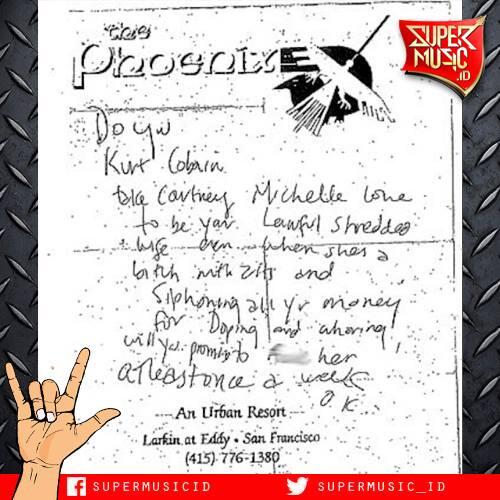 the
Phoenix
SUPER
MUSIC
.ID
Do you
Kurt Cobain
take Cortney Michelle Love
to be your Lawful Shredded
wife even when shes a
bitch with zits and
siphoning all yr money
for Doping and whoring!
will you promise to her
atleast once a week
O.K.
An Urban Resort
Larkin at Eddy • San Francisco
(415) 776-1380
SUPERMUSICID
SUPERMUSIC_ID